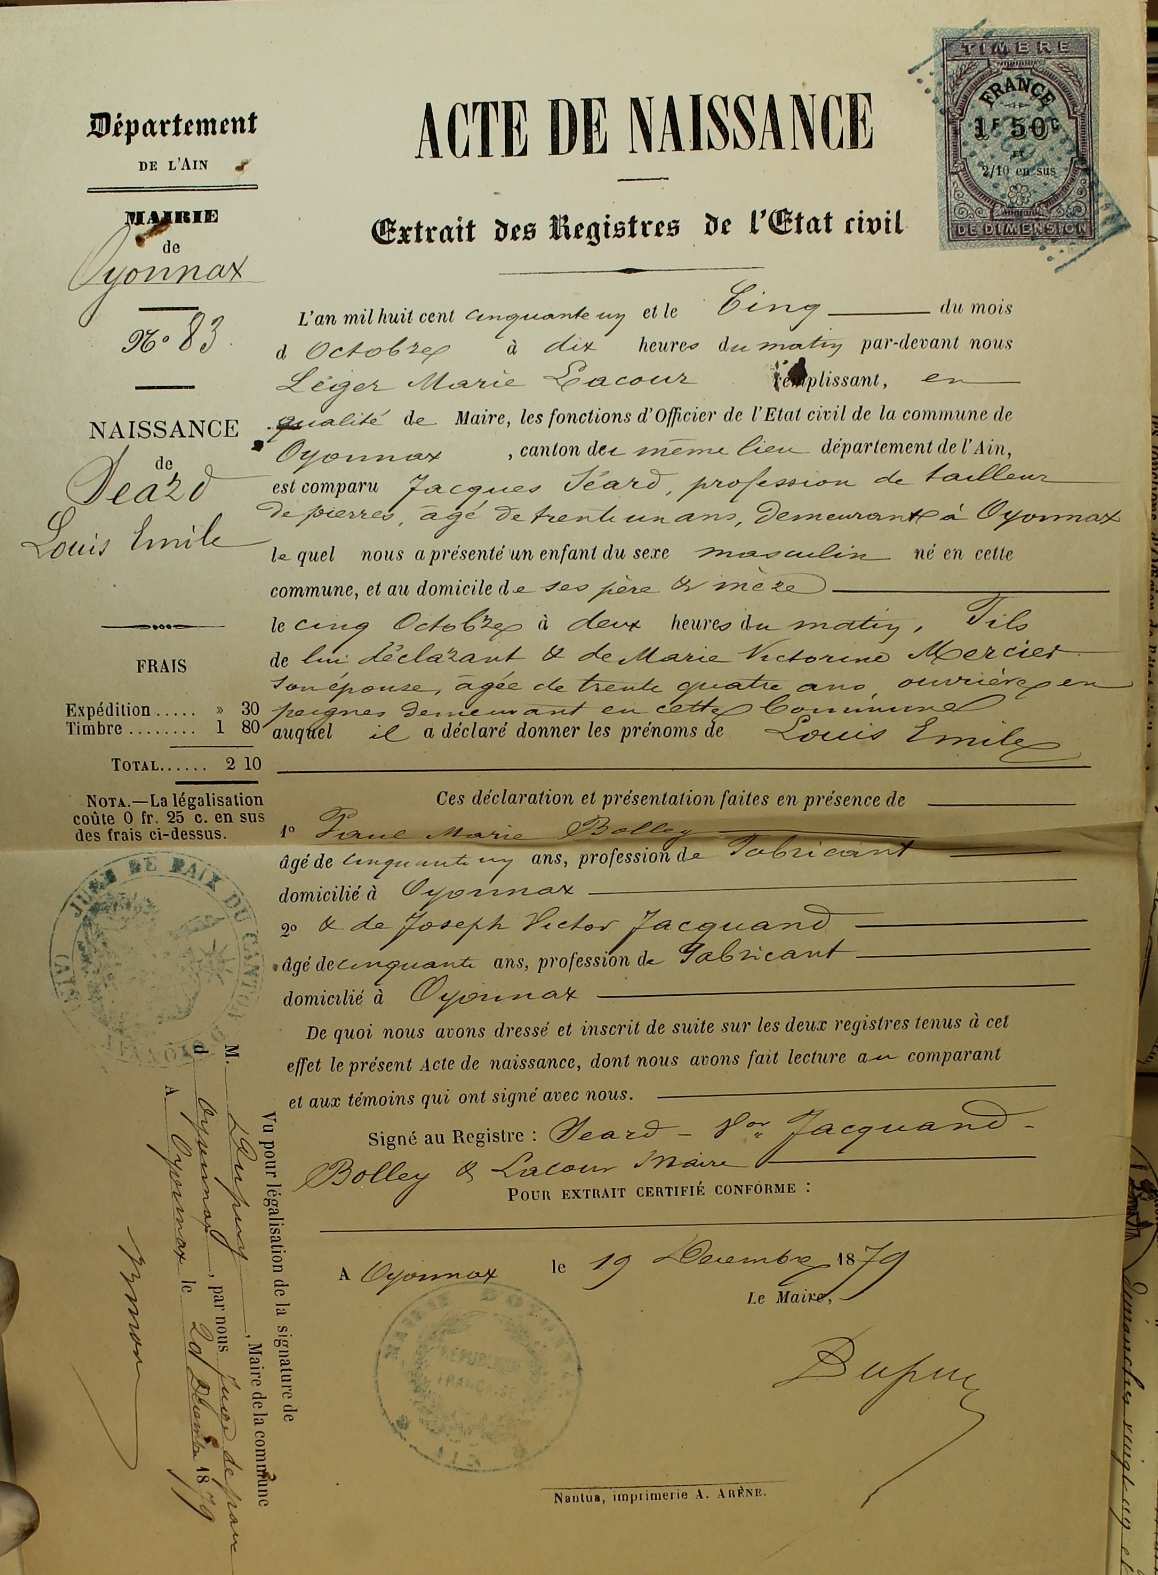 Département
DE L'AIN
MAIRIE
de
Oyonnax
No 83
NAISSANCE
de
Seard
Louis Emile
FRAIS
Expédition ..... » 30
Timbre ........ 1 80
TOTAL...... 2 10
NOTA.—La légalisation
coûte 0 fr. 25 c. en sus
des frais ci-dessus.
TIMBRE
FRANCE
1F 50C
ET
2/10 en sus
DE DIMENSION
ACTE DE NAISSANCE
Extrait des Registres de l'Etat civil
L'an mil huit cent cinquante un et le Cinq du mois
d Octobre à dix heures du matin par-devant nous
Léger Marie Lacour remplissant, en
qualité de Maire, les fonctions d'Officier de l'Etat civil de la commune de
Oyonnax, canton du même lieu département de l'Ain,
est comparu Jacques Séard, profession de tailleur
de pierres, âgé de trente un ans, demeurant à Oyonnax
le quel nous a présenté un enfant du sexe masculin né en cette
commune, et au domicile de ses père & mère
le cinq Octobre à deux heures du matin, Fils
de lui déclarant & de Marie Victorine Mercier
son épouse, âgée de trente quatre ans, ouvrière en
peignes demeurant en cette Commune
auquel il a déclaré donner les prénoms de Louis Emile
Ces déclaration et présentation faites en présence de
1o Paul Marie Bolley
âgé de cinquante un ans, profession de Fabricant
domicilié à Oyonnax
2o & de Joseph Victor Jacquand
âgé de cinquante ans, profession de Fabricant
domicilié à Oyonnax
De quoi nous avons dressé et inscrit de suite sur les deux registres tenus à cet
effet le présent Acte de naissance, dont nous avons fait lecture au comparant
et aux témoins qui ont signé avec nous.
Signé au Registre : Seard - Vor Jacquand -
Bolley & Lacour Maire
POUR EXTRAIT CERTIFIÉ CONFORME :
A Oyonnax le 19 Décembre 1879
Le Maire,
Dupuy
MAIRIE D'OYONNAX
REPUBLIQUE
FRANÇAISE
AIN
Nantua, imprimerie A. ARÈNE.
JUGE DE PAIX DU CANTON D'OYONNAX (AIN)
Vu pour légalisation de la signature de
M. Dupuy, Maire de la commune
d Oyonnax, par nous Juge de paix
A Oyonnax le 20 Décembre 1879